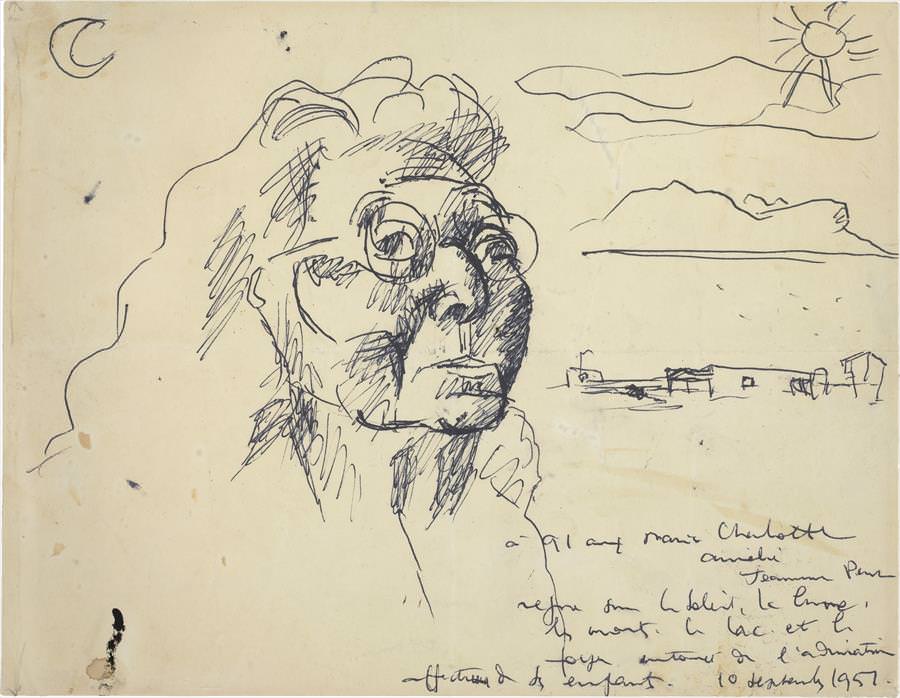 à 91 ans Marie Charlotte
Amélie
Jeanneret
règne sur le soleil, la lune,
les monts. le lac et le
foyer entourée de l'admiration
affectueuse de ses enfants. 10 septembre 1951.